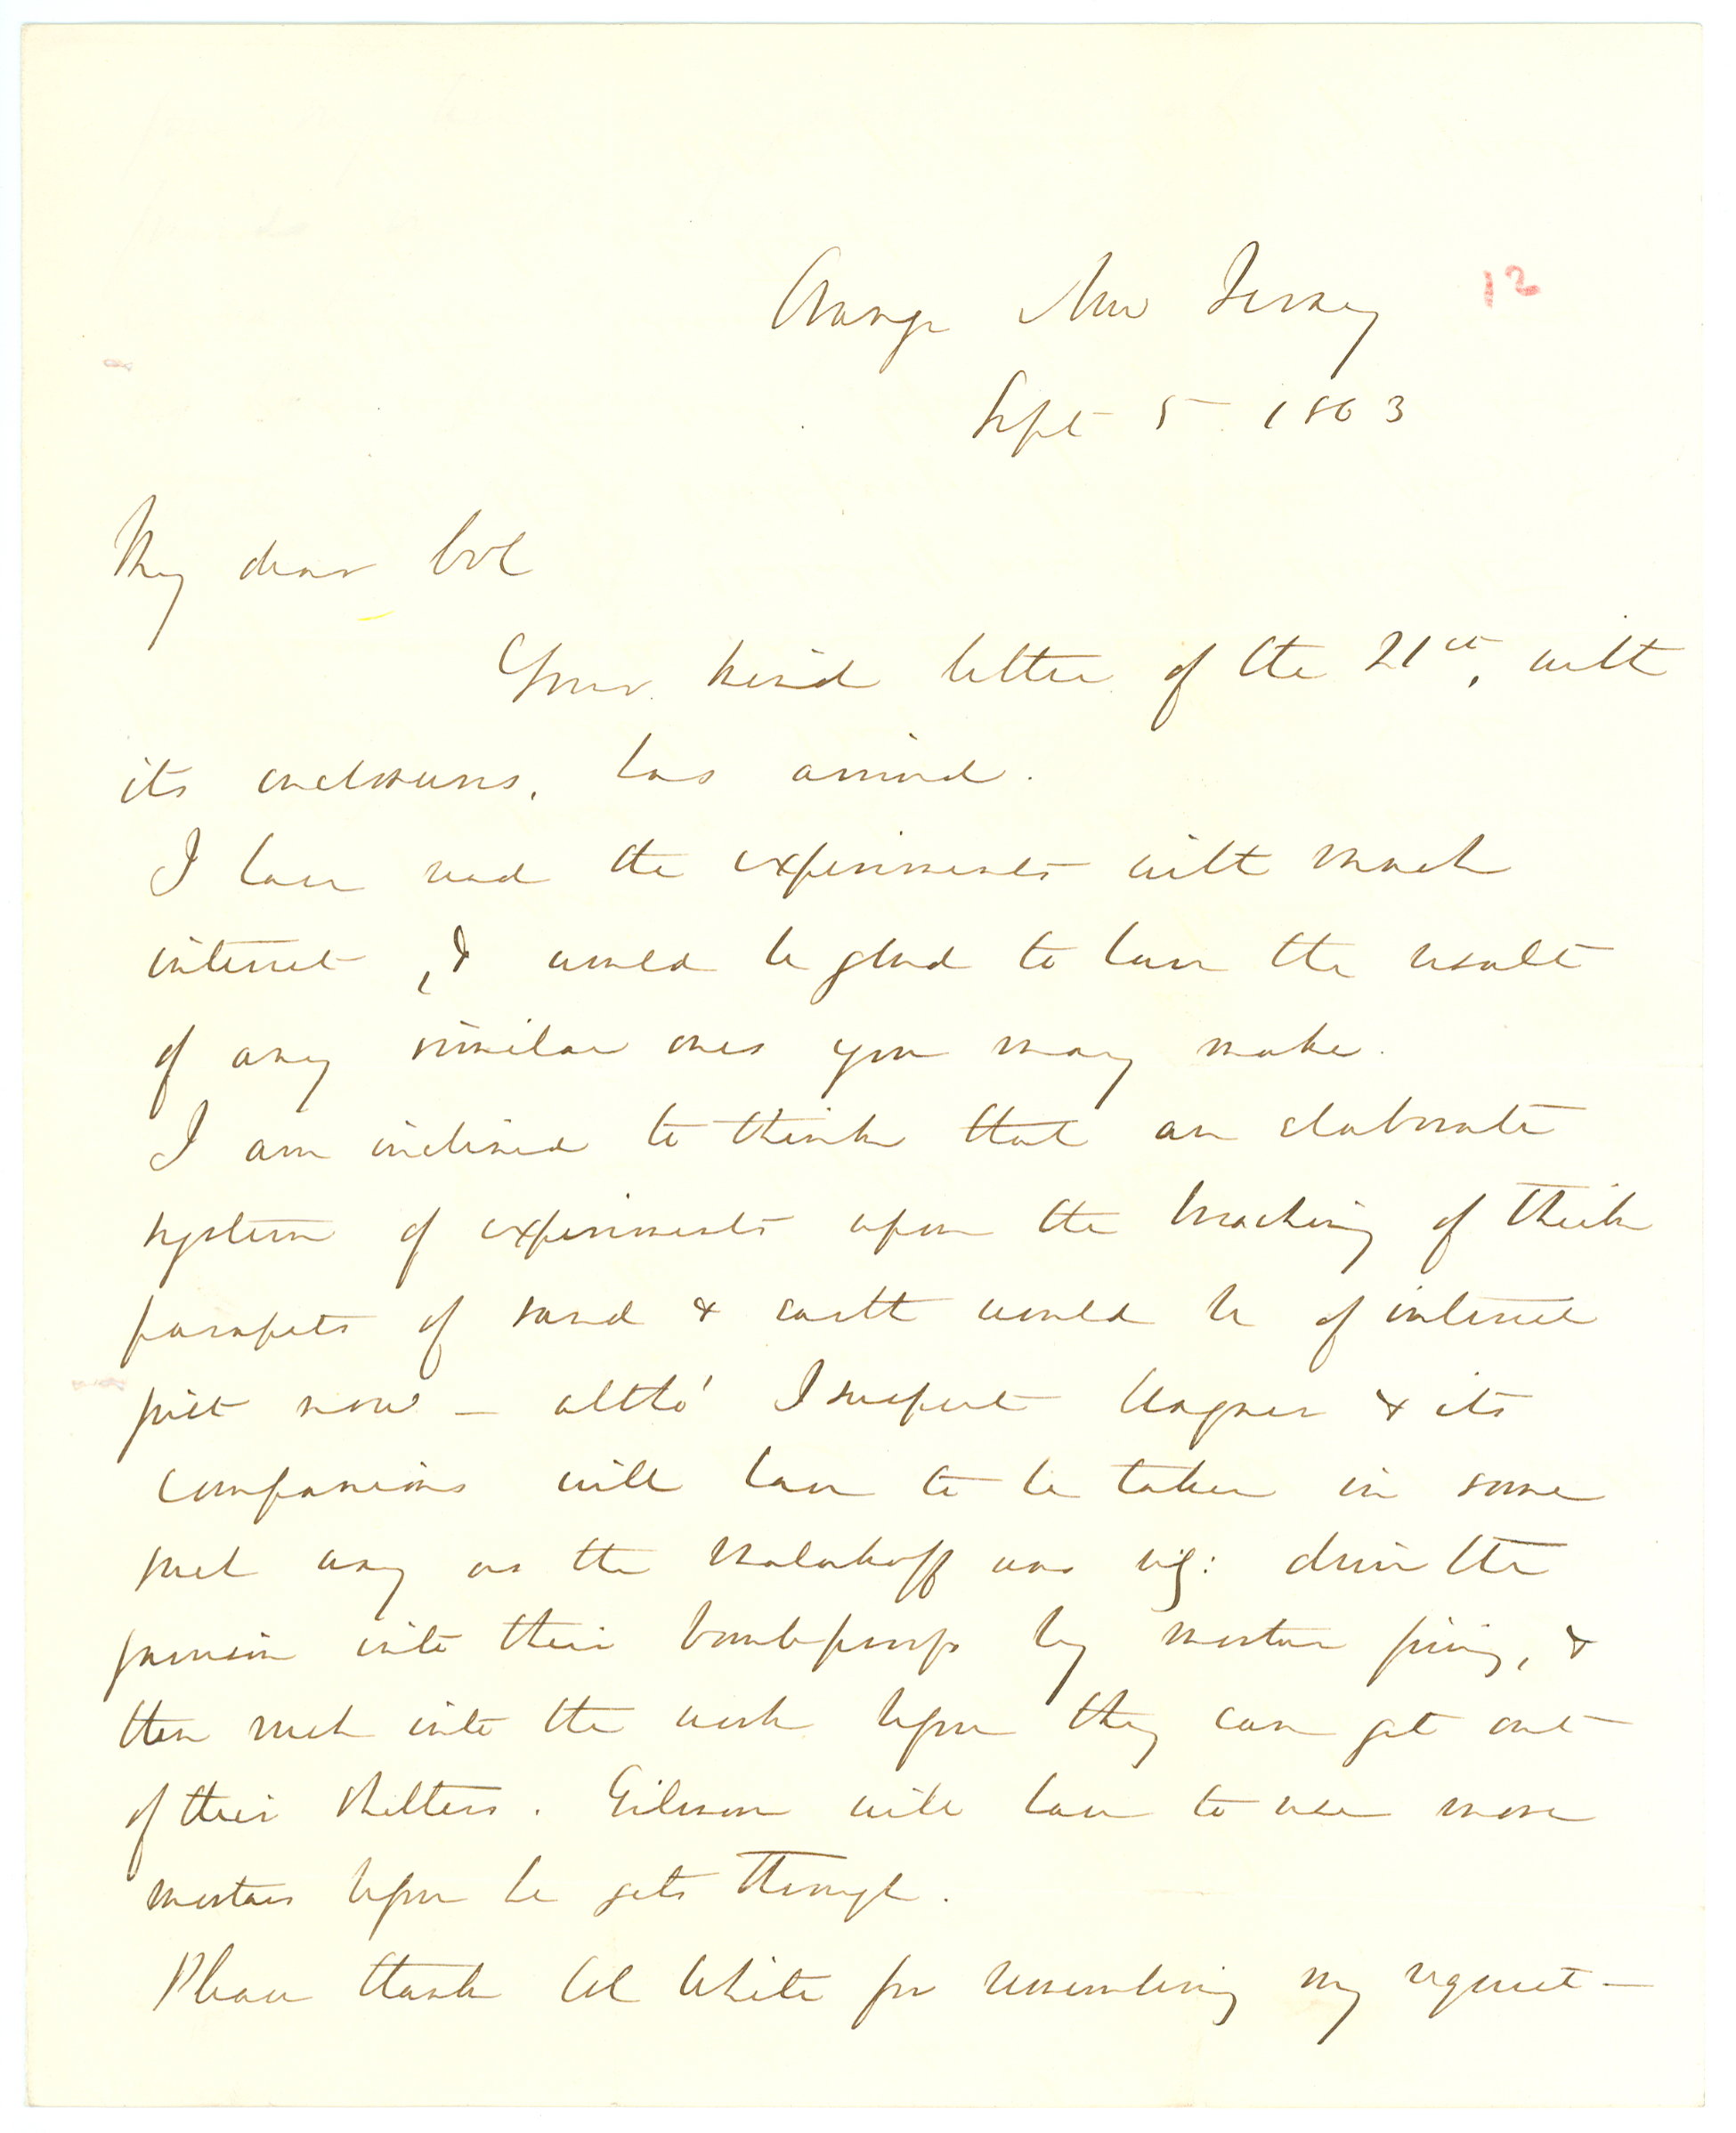 Orange New Jersey
12
Sept 5 1863
My dear Col
Your kind letter of the 21st, with
its enclosures, has arrived.
I have read the experiments with much
interest, & would be glad to have the result
of any similar ones you may make.
I am inclined to think that an elaborate
system of experiments upon the breaching of thick
parapets of sand & earth would be of interest
just now — altho' I suspect Wagner & its
companions will have to be taken in some
such way as the Malakoff was viz: drive the
garrison into their bombproofs by mortar firing, &
then rush into the work before they can get out
of their shelters. Gilmore will have to use more
mortars before he gets through.
Please thank Col White for remembering my request —